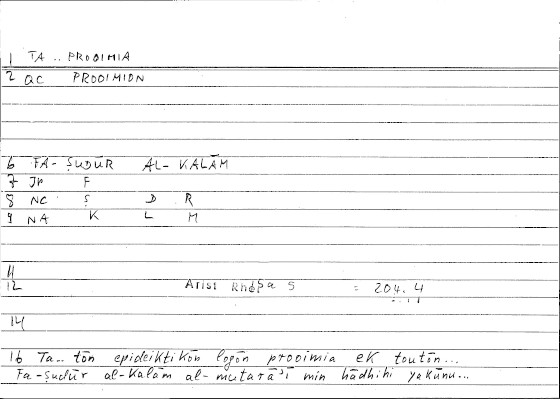 1 TA .. PROOIMIA
2 QC PROOIMION
6 FA- ṢUDŪR AL- KALĀM
7 Jr F
8 NC Ṣ D R
9 NA K L M
11
12 Arist = 204. 4
14
16 Ta.. tōn epideiktikōn logōn prooimia ek toutōn...
Fa-ṣudūr al-Kalām al-mutarā'ī min hādhihi yakūnu...